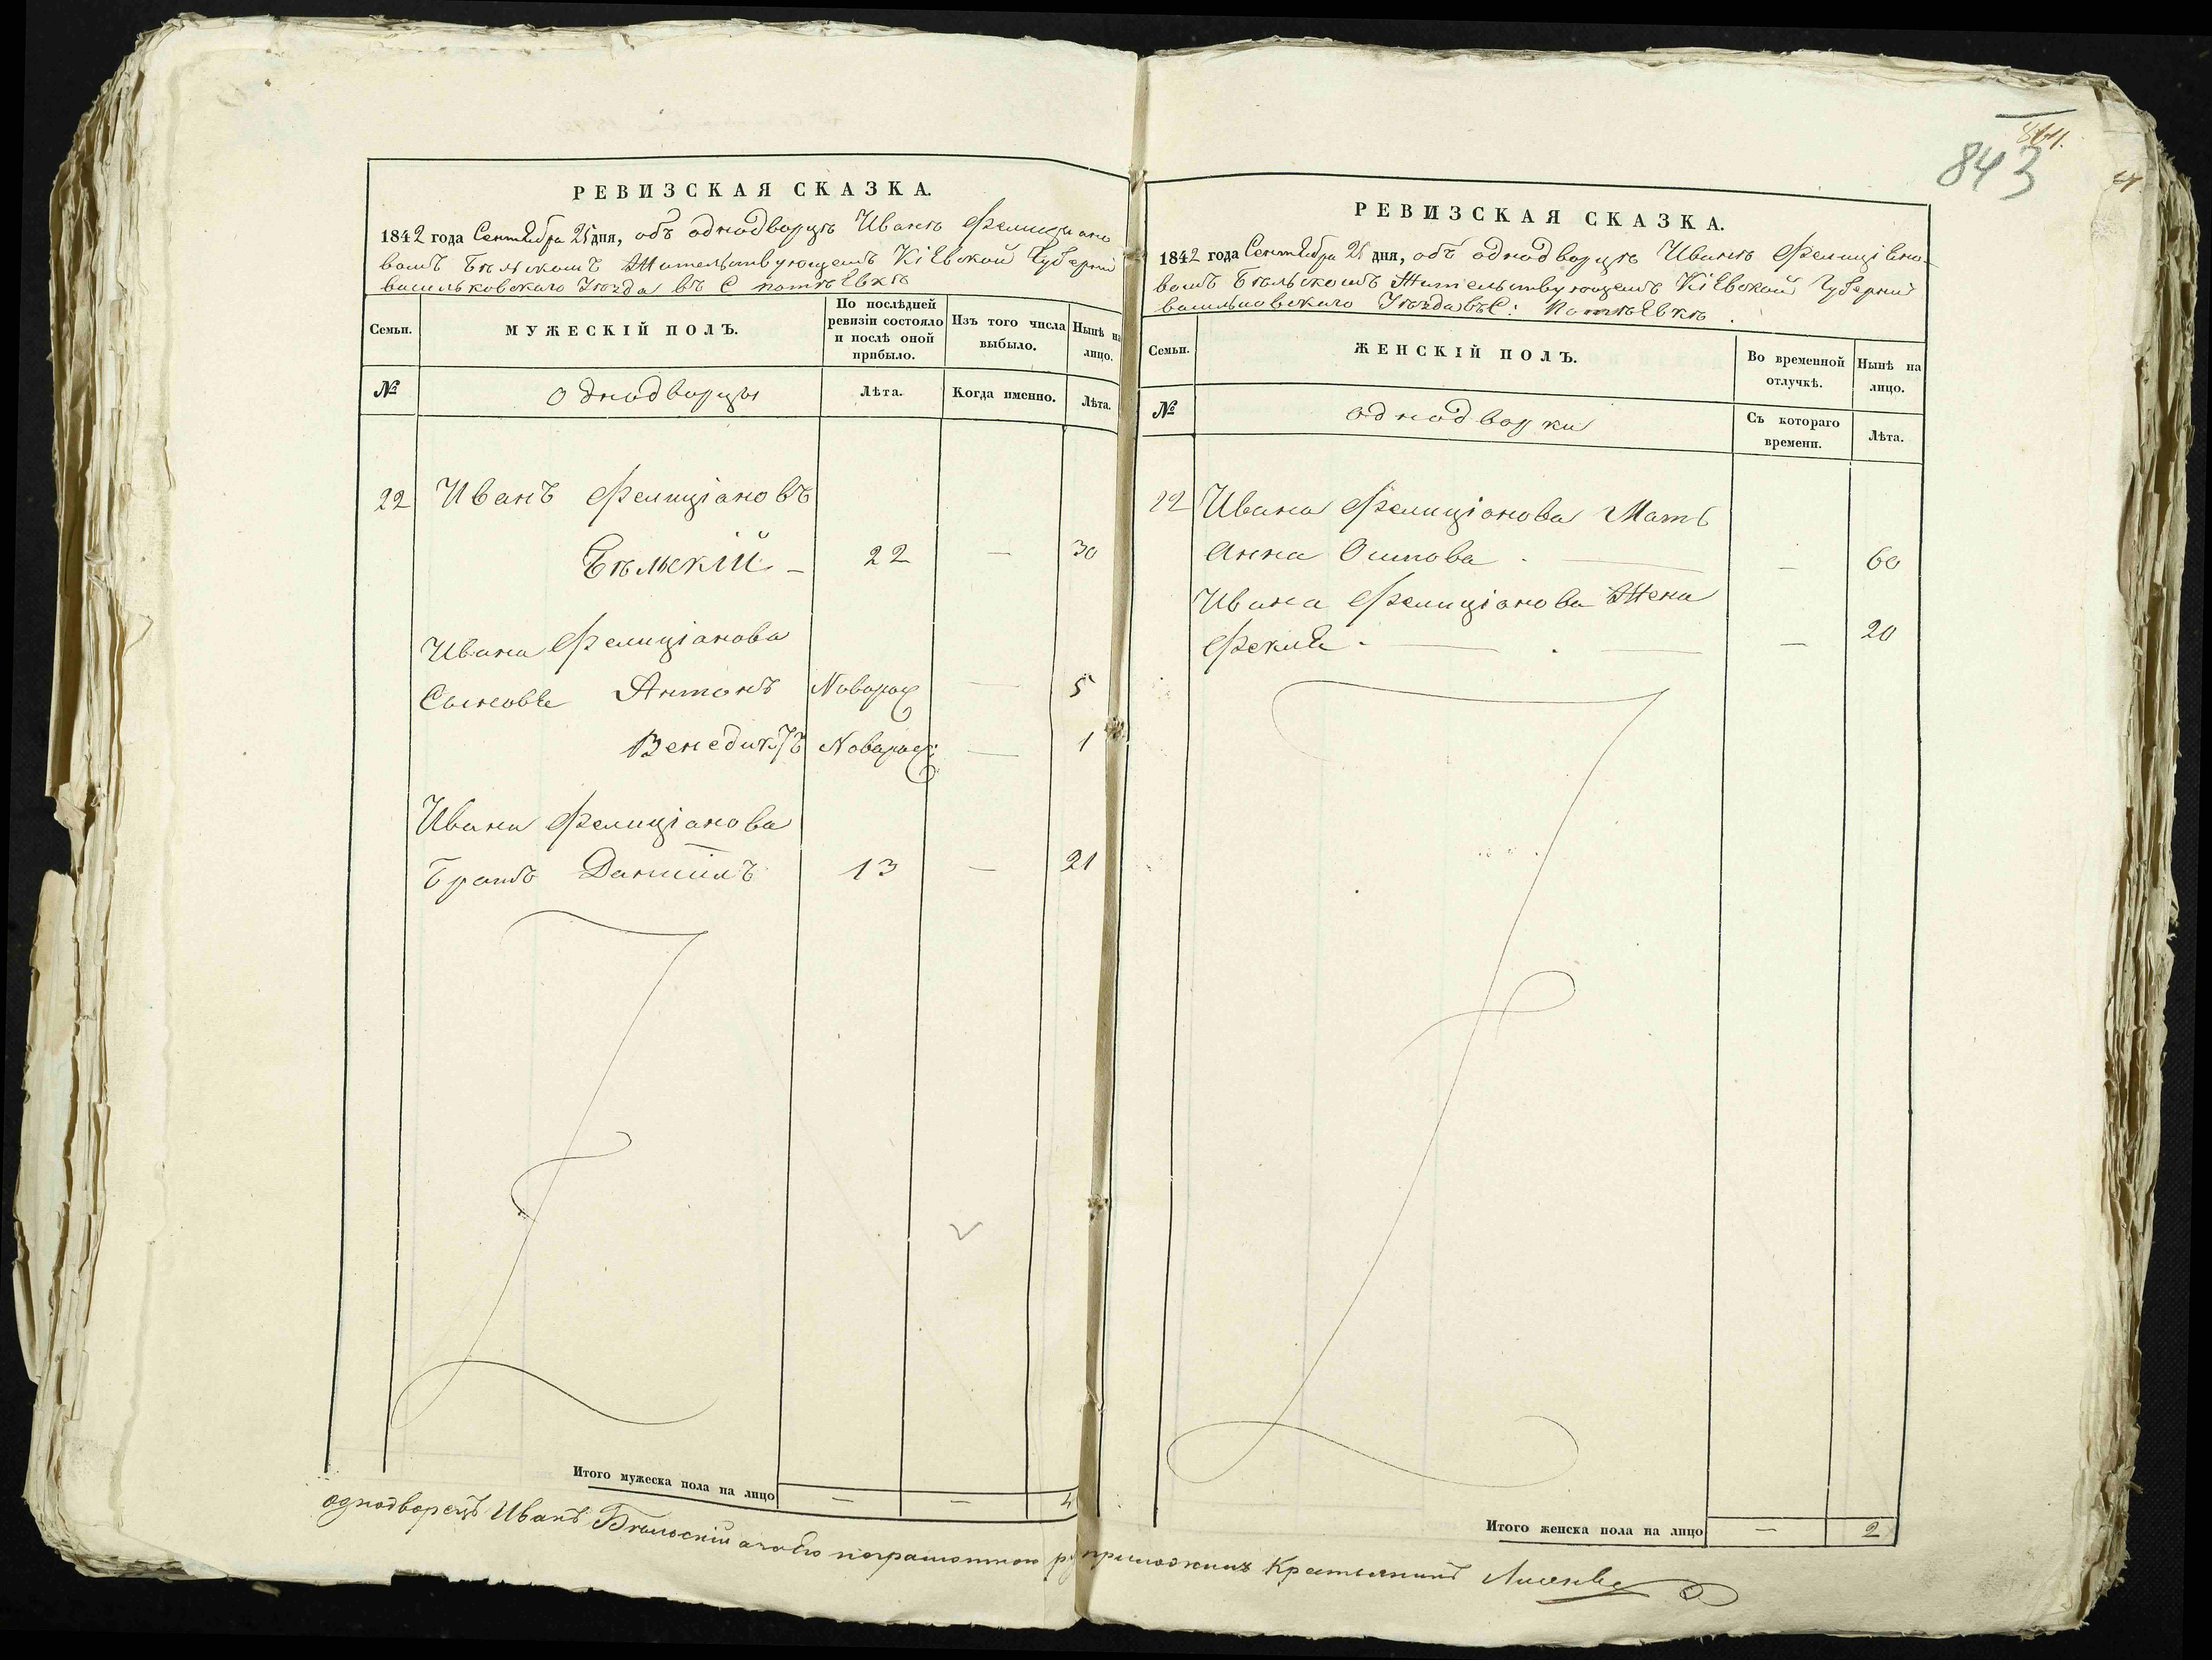 РЕВИЗСКАЯ СКАЗКА.
1842 года Сентября 25 дня, объ однодворцѣ Иванѣ Фелиціано
вомъ Бѣльскомъ Жительствующемъ Кіевской Губерніи
васильковского Уѣзда въ С потѣевкѣ
Семьи.
МУЖЕСКІЙ ПОЛЪ.
По послѣдней ревизіи состояло и послѣ оной прибыло.
Изъ того числа выбыло.
Нынѣ на лицо.
№
однодворцы
Лѣта.
Когда именно.
Лѣта.
22 Иванъ Фелиціановъ
Бѣльскій — 22 — 30
Ивана Фелиціанова
Сыновье Антонъ Коворож — 5
Венедиктъ Новорож: — 1
Ивана Фелиціанова
Братъ Даніилъ 13 — 21
Итого мужеска пола на лицо — — 4
843
РЕВИЗСКАЯ СКАЗКА.
1842 года Сентября 25 дня, объ однодворцѣ Иванѣ Фелиціано-
вомъ Бѣльскомъ Жительствующемъ Кіевской Губерніи
васильковского Уѣзда въ С: Потѣевкѣ.
Семьи.
ЖЕНСКІЙ ПОЛЪ.
Во временной отлучкѣ.
Нынѣ на лицо.
№
однодворки
Съ котораго времени.
Лѣта.
22 Ивана Фелиціанова Мать
Анна Осипова — 60
Ивана Фелиціанова Жена
Фекля — 20
Итого женска пола на лицо — 2
однодворецъ Иванъ Бѣльскій а за его неграмотною ру приложилъ Крестьянинъ